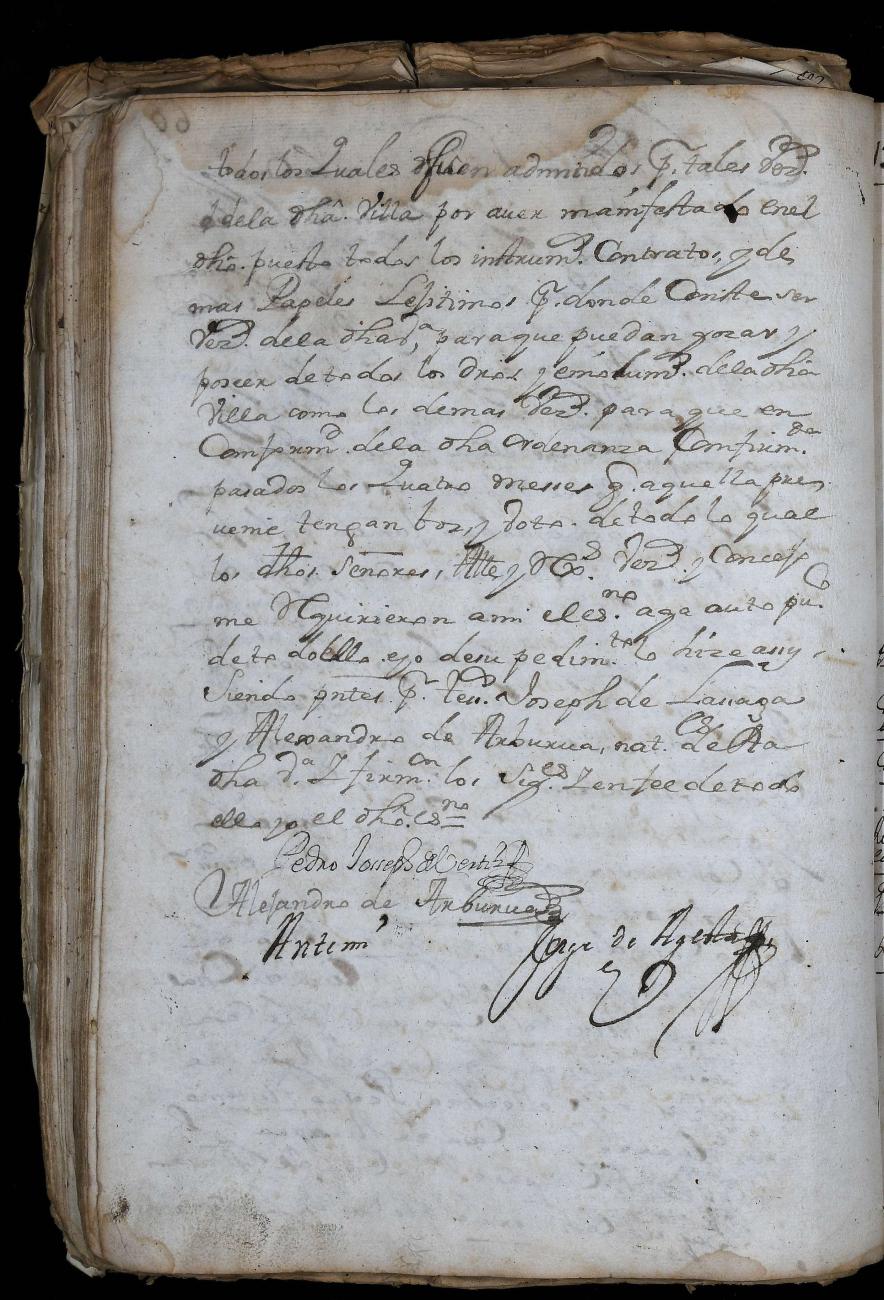 todos los Quales fueron admitidos p.r tales Vez.s
de la dha. Villa por aver manifestado en el
dho. puesto todos los instrum.s Contratos, y de
mas Papeles Lejitimos p.r donde Conste ser
Vez.s de la dha v.a para que puedan gozar y
poseer de todos los dros y emolum.s de la dha
Villa como los demas Vez.s para que en
Conform.d de la dha ordenanza Confirm.da
pasados los Quatro messes q. aquella pre
viene tengan boz, y Voto. de todo lo qual
los dhos Señores, Alle y Rex.s Vez.s y Concejo
me Requirieron a mi el es.no aga auto pu.co
de todo ello eyo de su pedim.to lo hize assy
Siendo pntes p.r tes.s Joseph de Lasaga
y Alexandro de Arburua, nat.les de esta
dha v.a Y firm.on los Sig.es Y en fee de todo
ello yo el dho. es.no =
Pedro Josseph de Vertiz
Alejandro de Arburua
Ante mi
Jorge de